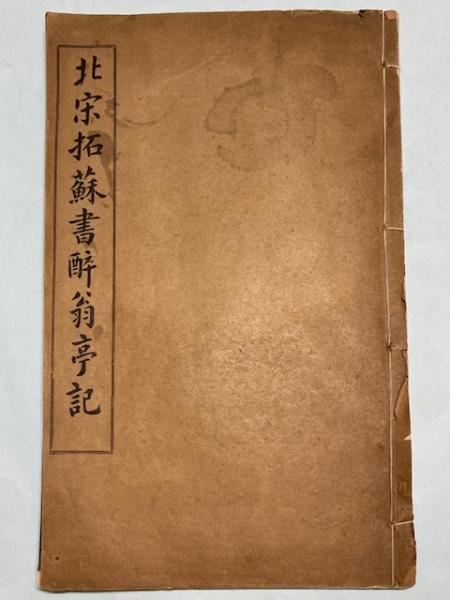 北宋拓蘇書醉翁亭記